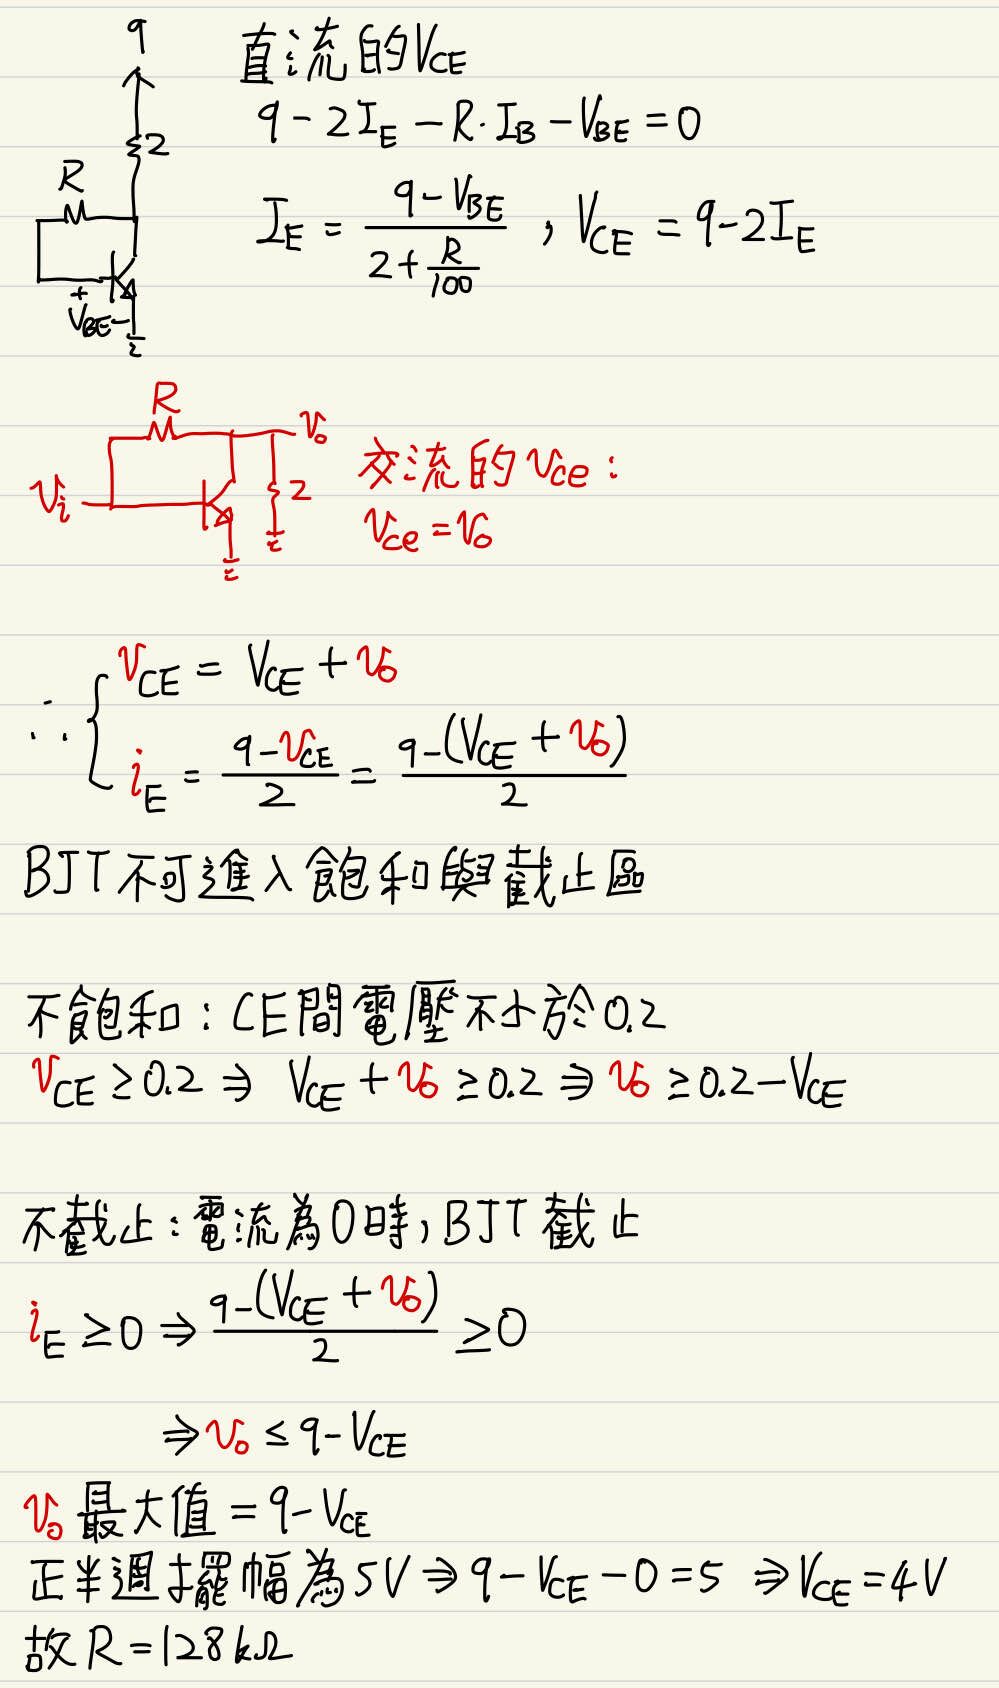 9
直流的VCE
9-2IE-R·IB-VBE=0
2
R
IE = (9-VBE)/(2+R/100) , VCE = 9-2IE
+
VBE-
R
vo
vi
2
交流的vce:
vce=vo
∴ { vCE = VCE + vo
iE = (9-vCE)/2 = (9-(VCE + vo))/2
BJT不可進入飽和與截止區
不飽和:CE間電壓不小於0.2
vCE ≥0.2 ⇒ VCE + vo ≥0.2 ⇒ vo ≥0.2-VCE
不截止:電流為0時,BJT截止
iE ≥0 ⇒ (9-(VCE + vo))/2 ≥0
⇒ vo ≤ 9-VCE
vo 最大值 = 9-VCE
正半週擺幅為5V ⇒ 9-VCE-0=5 ⇒ VCE=4V
故R=128kΩ